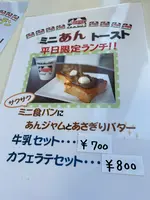 ミニあんトースト
平日限定ランチ!!
サクサク
ミニ食パンに
あんジャムとあさぎりバター
牛乳セット・・・¥700
カフェラテセット・・・¥800